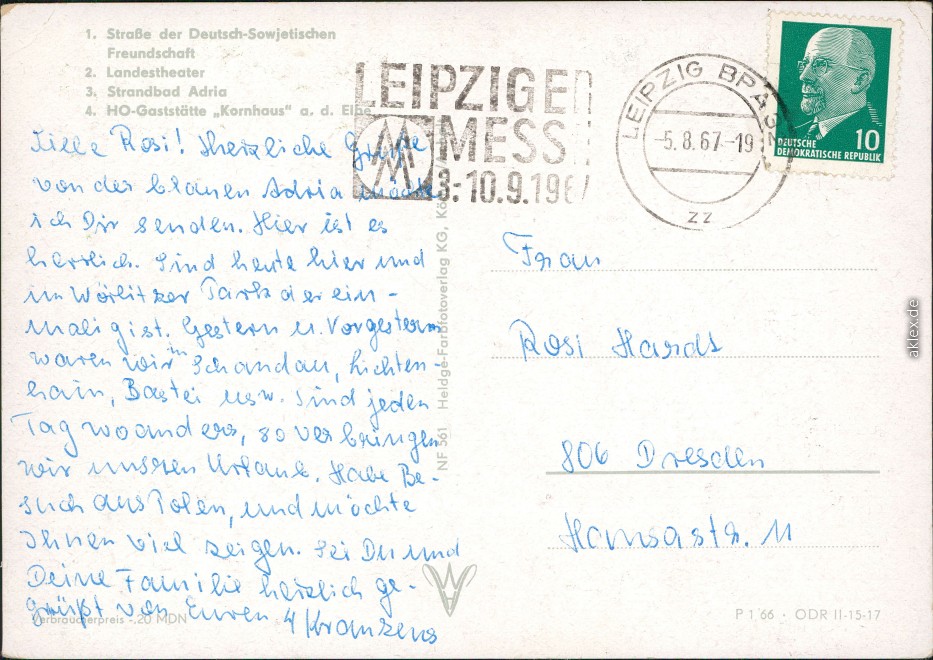 1. Straße der Deutsch-Sowjetischen
Freundschaft
2. Landestheater
3. Strandbad Adria
4. HO-Gaststätte „Kornhaus" a. d. Elbe
LEIPZIGER
MESSE
3.-10.9.1967
LEIPZIG BPA 32
-5.8.67-19
ZZ
10
DEUTSCHE
DEMOKRATISCHE REPUBLIK
Liebe Rosi! Herzliche Grüße
von der blauen Adria möchte
ich Dir senden. Hier ist es
herrlich. Sind heute hier und
im Wörlitzer Park der ein-
malig ist. Gestern u. Vorgestern
waren wir in Schandau, Lichten-
hain, Bastei usw. Sind jeden
Tag woanders, so verbringen
wir unseren Urlaub. Habe Be-
such aus Polen, und möchte
Ihnen viel zeigen. Sei Du und
Deine Familie herzlich ge-
grüßt von Euren 4 Kranzens
Frau
Rosi Hardt
806 Dresden
Hansastr. 11
NF 561 Heldge-Farbfotoverlag KG,
Verbraucherpreis -.20 MDN
P 1'66 · ODR II-15-17
aklex.de